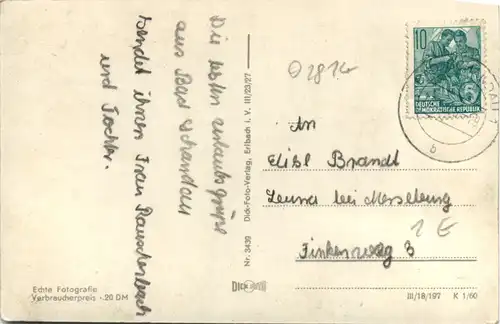 Die besten Urlaubsgrüße
aus Bad Schandau
sendet ihnen Frau Rauschenbach
und Tochter.
Nr. 3439 Dick-Foto-Verlag, Erlbach i. V. III/23/27
DICK
10
DEUTSCHE
DEMOKRATISCHE REPUBLIK
b
An
Elisl Brandt
Leuna bei Merseburg
Finkenweg 3
1 E
Echte Fotografie
Verbraucherpreis -.20 DM
III/18/197 K 1/60